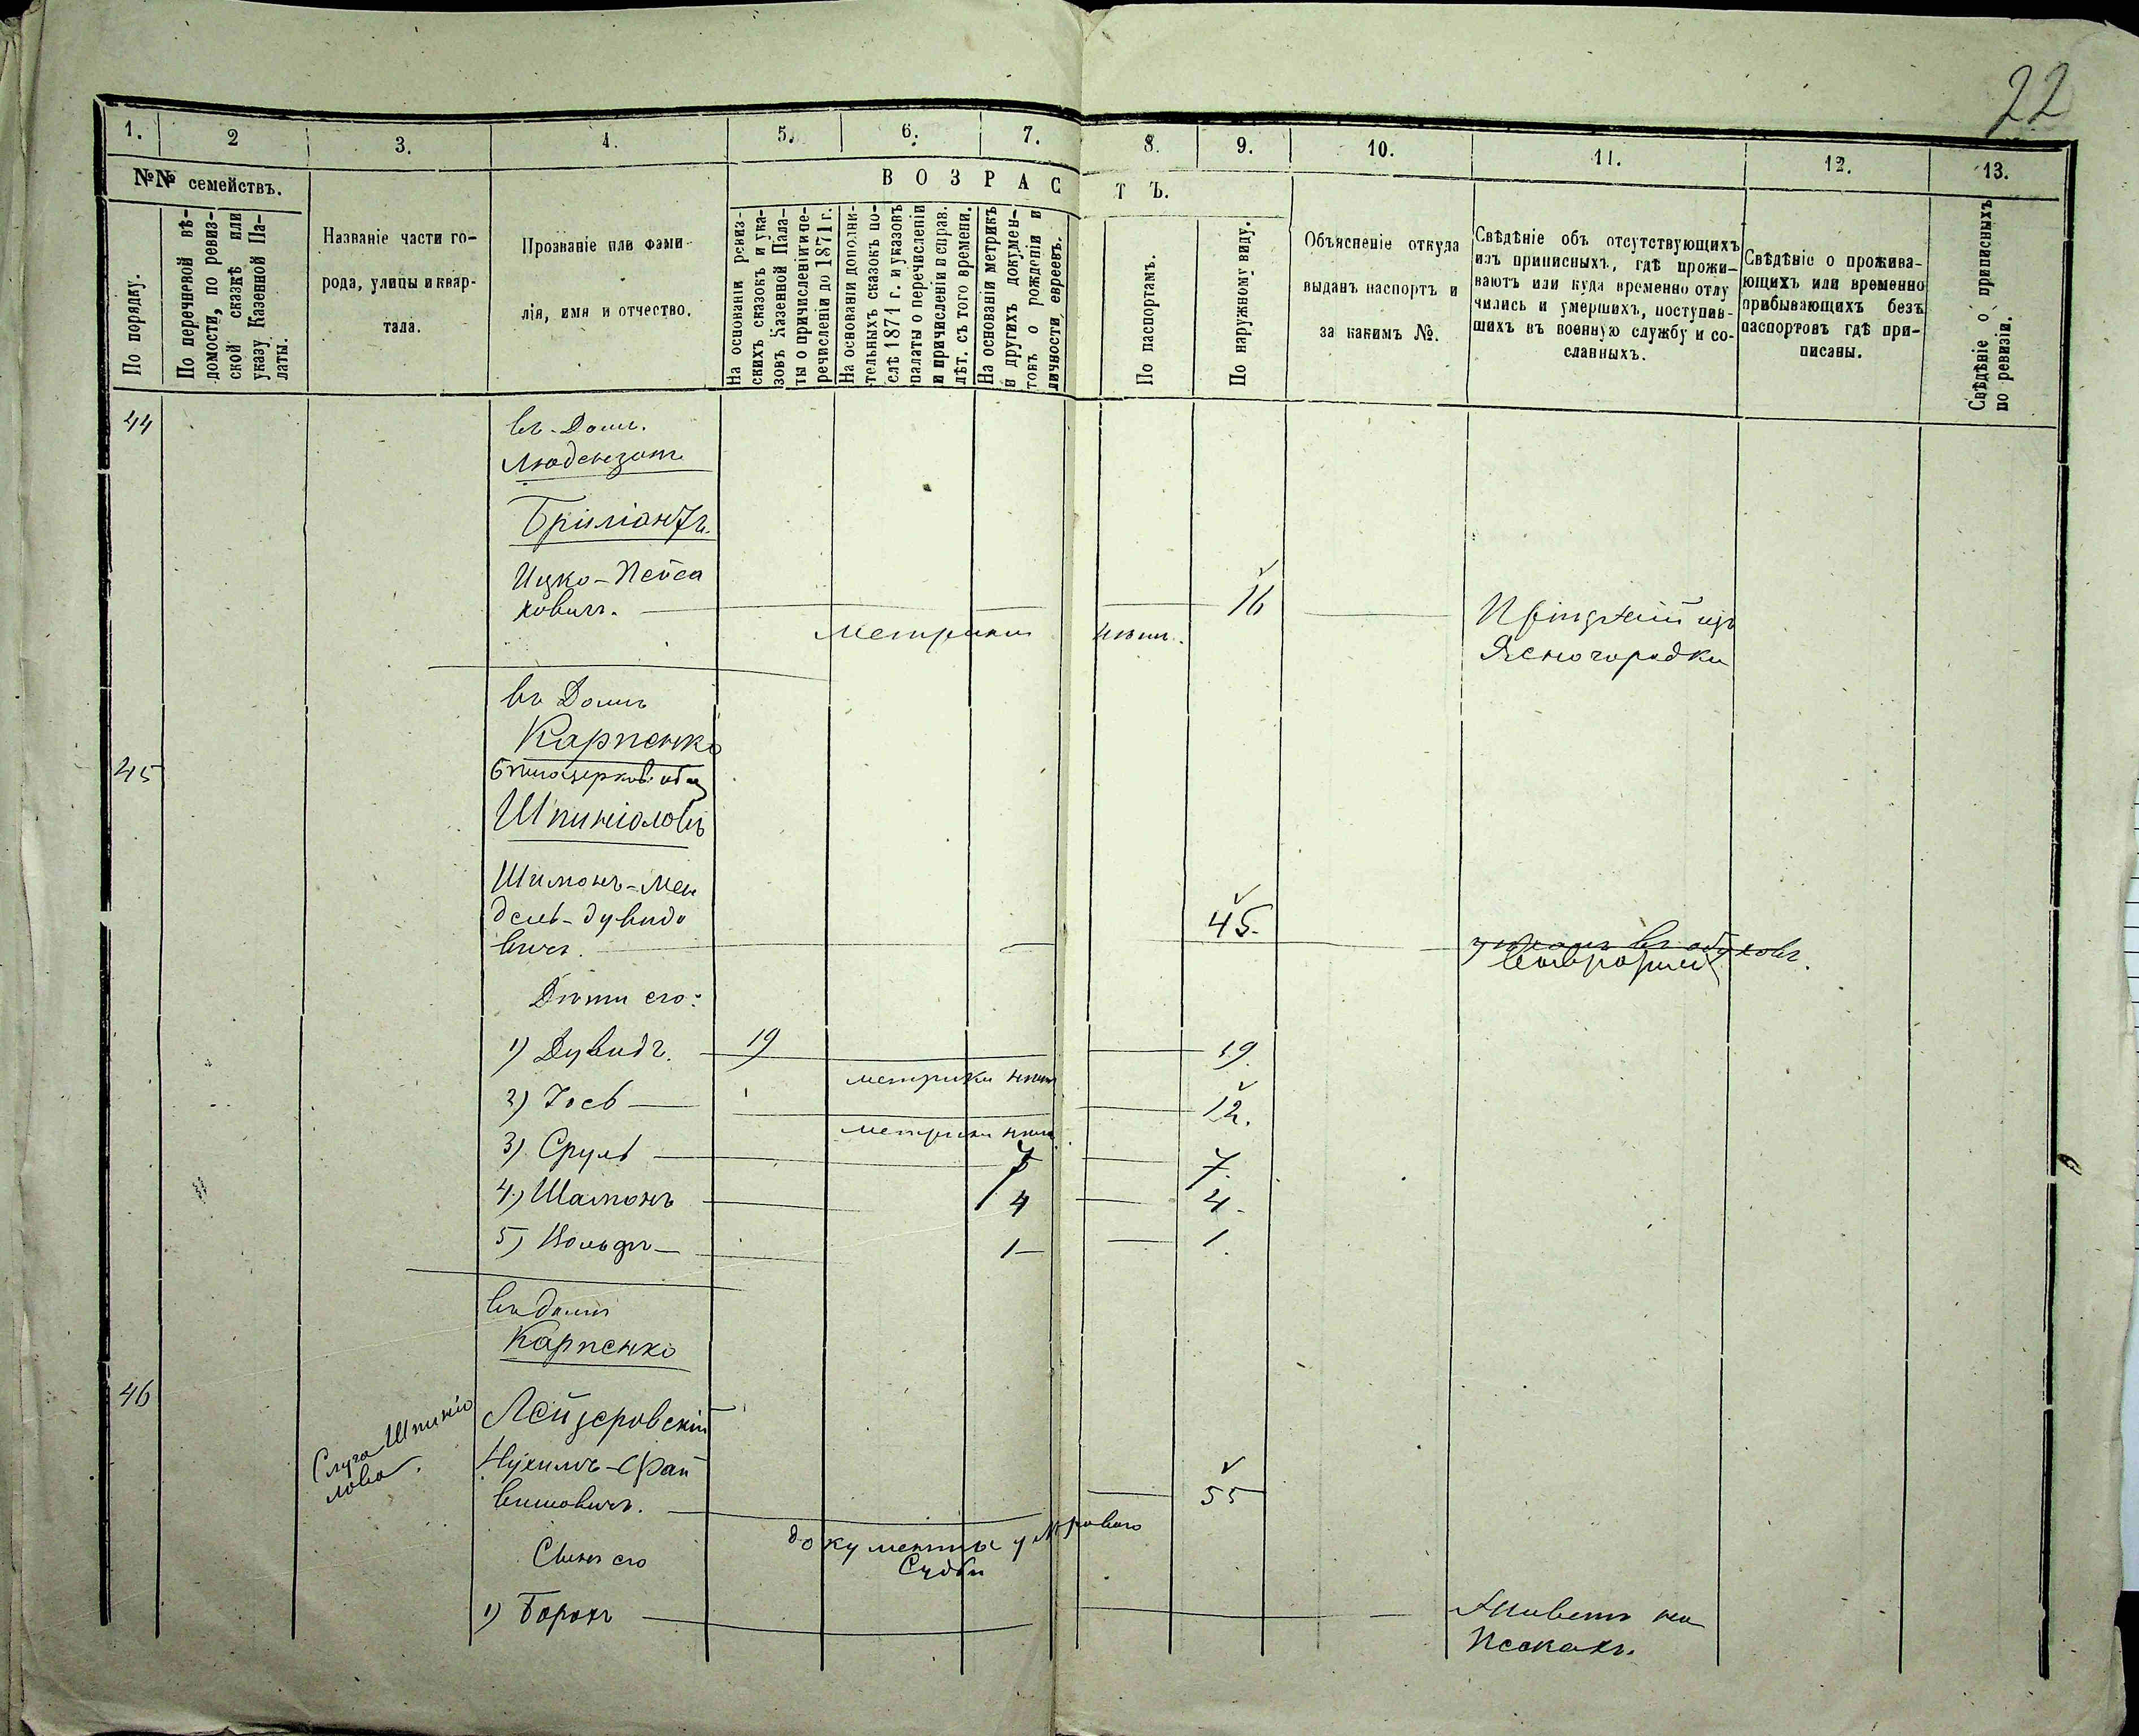 22
1. 2 3. 4. 5. 6. 7. 8. 9. 10. 11. 12. 13.
№№ семействъ.
По порядку.
По перечневой вѣ-
домости, по ревиз-
ской сказкѣ или
указу Казенной Па-
латы.
Названіе части го-
рода, улицы и квар-
тала.
Прозваніе или фами-
лія, имя и отчество.
ВОЗРАСТЪ.
На основаніи ревиз-
скихъ сказокъ и ука-
зовъ Казенной Пала-
ты о причисленіи и пе-
речисленіи до 1871 г.
На основаніи дополни-
тельныхъ сказокъ по-
слѣ 1871 г. и указовъ
палаты о перечисленіи
и причисленіи и справ.
лѣт. съ того времени.
На основаніи метрикъ
и другихъ докумен-
товъ о рожденіи и
личности евреевъ.
По паспортамъ.
По наружному виду.
Объясненіе откуда
выданъ паспортъ и
за какимъ №.
Свѣдѣніе объ отсутствующихъ
изъ приписныхъ, гдѣ прожи-
ваютъ или куда временно отлу
чились и умершихъ, поступив-
шихъ въ военную службу и со-
сланныхъ.
Свѣдѣніе о прожива-
ющихъ или временно
прибывающихъ безъ
паспортовъ гдѣ при-
писаны.
Свѣдѣніе о приписныхъ
по ревизіи.
44 въ Дом.
Бриліантъ.
Ицко-Пейса
ховичъ. 16
метрики нѣтъ.
изъ
Ясногородки
въ Домѣ
Карпенко
45
Шпиніоловъ
Шимонъ-Мен
дель-Дувидо
вичъ. 45.
Дѣти его:
1) Дувидъ. 19 19.
метрики нѣтъ
2) Іосъ 12.
метрики нѣтъ
3) Сруль 7 7.
4) Шамонъ 4 4.
5) Вольфъ 1 1.
въ домѣ
Карпенко
46 Лейзеровскій
Слуга Шпиніо
лова.
Нухимъ-Срай
вишовичъ. 55
документы у Мирового
Судьи
Сынъ его
1) Борохъ Живетъ на
Пескахъ.